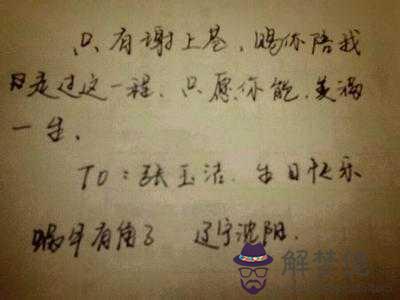 只有谢上苍，赐你陪我
走过这一程，只愿你能，美满
一生。
TO：张玉洁，生日快乐
蜗牛有角了 辽宁沈阳.
解梦佬